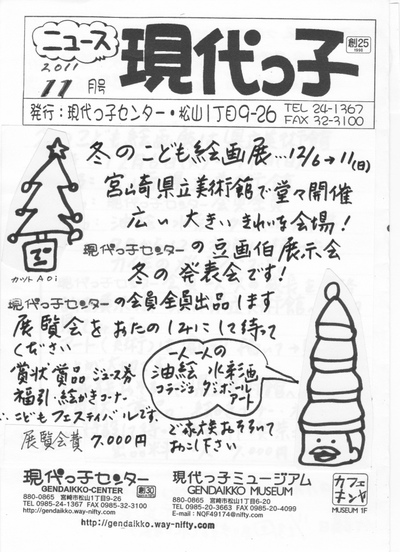 ニュース
2011
11月号
現代っ子
創25
発行:現代っ子センター・松山1丁目9-26
TEL 24-1367
FAX 32-3100
冬のこども絵画展…12/6→11(日)
宮崎県立美術館で堂々開催
広い大きいきれいな会場!
現代っ子センターの豆画伯展示会
冬の発表会です!
カットAoi
現代っ子センターの会員全員出品します
展覧会をおたのしみにして待って
ください
一人一人の
油絵 水彩画
コラージュ ダンボール
アート
賞状賞品 ジュース券
福引・絵かきコーナー
こどもフェスティバルです
展覧会費 7.000円
ご家族おそろいで
おこし下さい
現代っ子センター
GENDAIKKO-CENTER
創30
880-0865 宮崎市松山1丁目9-26
TEL 0985-24-1367 FAX 0985-32-3100
http://gendaikko.way-nifty.com/
現代っ子ミュージアム
GENDAIKKO MUSEUM
880-0865 宮崎市松山1丁目6-20
TEL 0985-20-4663 FAX 0985-20-4099
E-mail : NQF49174@nifty.com
カフェ
キンヤ
MUSEUM 1F
http://gendaikko.way-nifty.com/